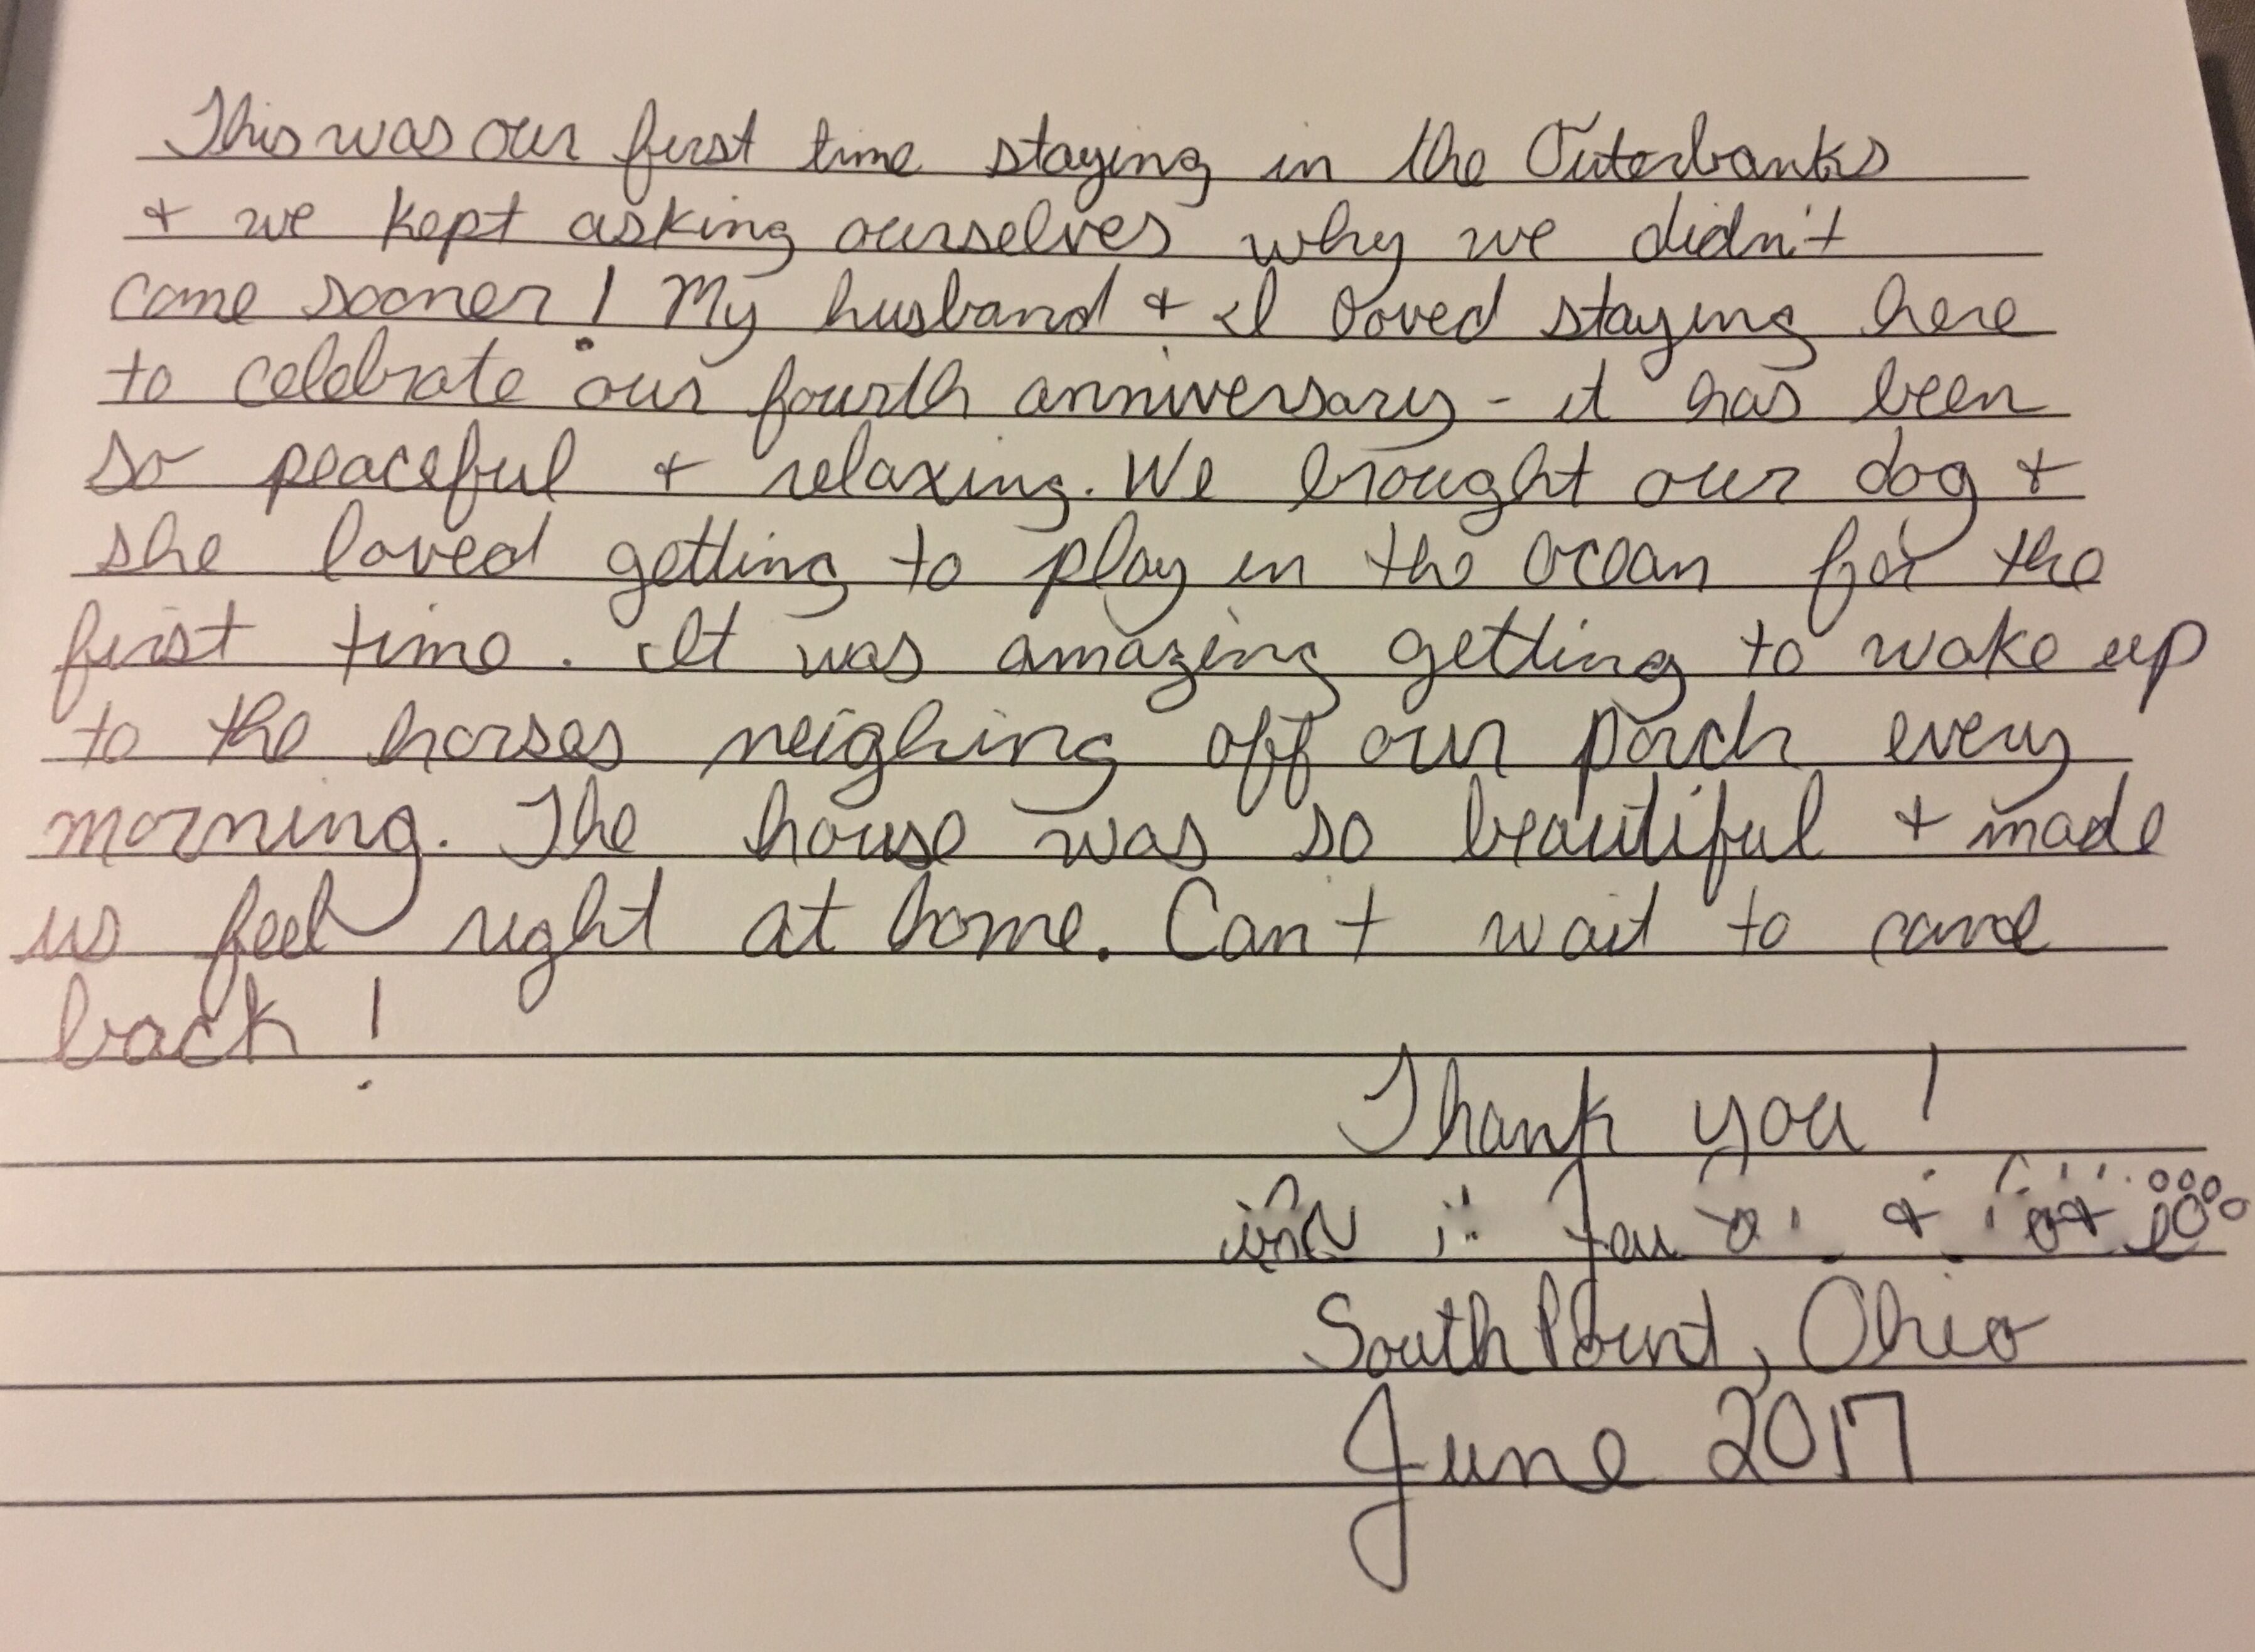 This was our first time staying in the Outerbanks
+ we kept asking ourselves why we didn't
come sooner! My husband + I loved staying here
to celebrate our fourth anniversary - it has been
so peaceful + relaxing. We brought our dog +
she loved getting to play in the ocean for the
first time. It was amazing getting to wake up
to the horses neighing off our porch every
morning. The house was so beautiful + made
us feel right at home. Can't wait to come
back!
Thank you!
+
South Point, Ohio
June 2017